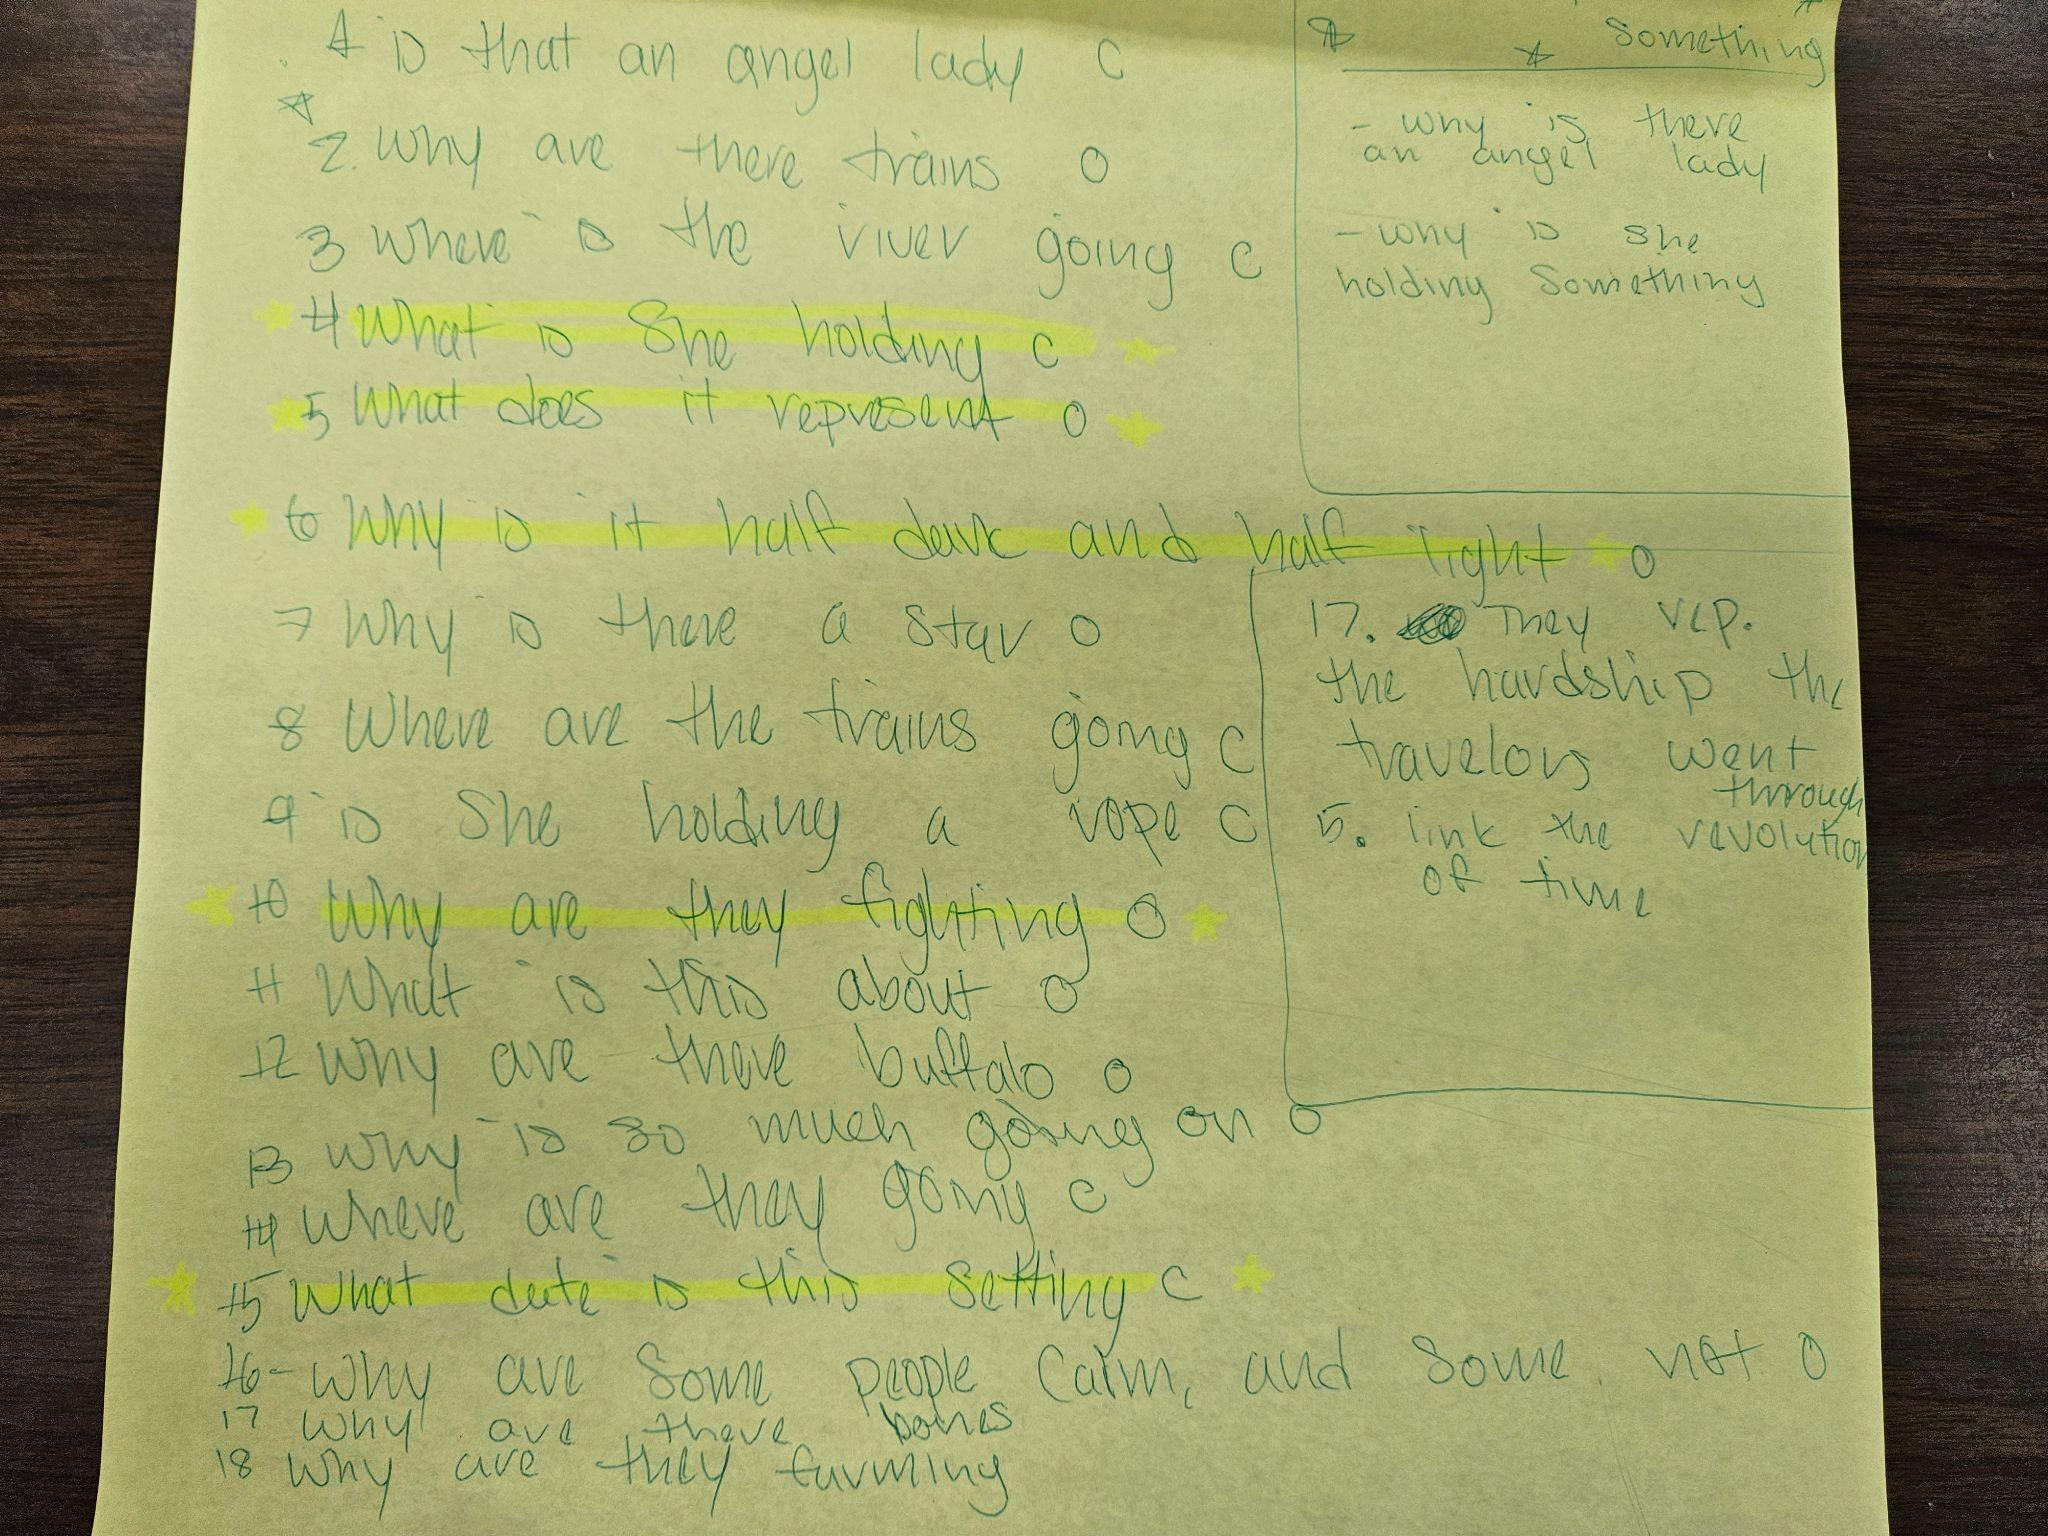 1 is that an angel lady C
2. Why are there trains O
3 Where is the river going C
4 What is She holding C
5 What does it represent O
6 Why is it half dark and half light O
7 Why is there a star O
8 Where are the trains going C
9 is She holding a rope C
10 Why are they fighting O
11 What is this about O
12 Why are there buffalo O
13 Why is so much going on O
14 Where are they going C
15 What date is this setting C
16- Why are Some people Calm, and Some not O
17 Why are there bones
18 Why are they farming
Something
- why is there
an angel lady
- why is she
holding Something
17. They rep.
the hardship the
travelors went
through
5. link the revolution
of time